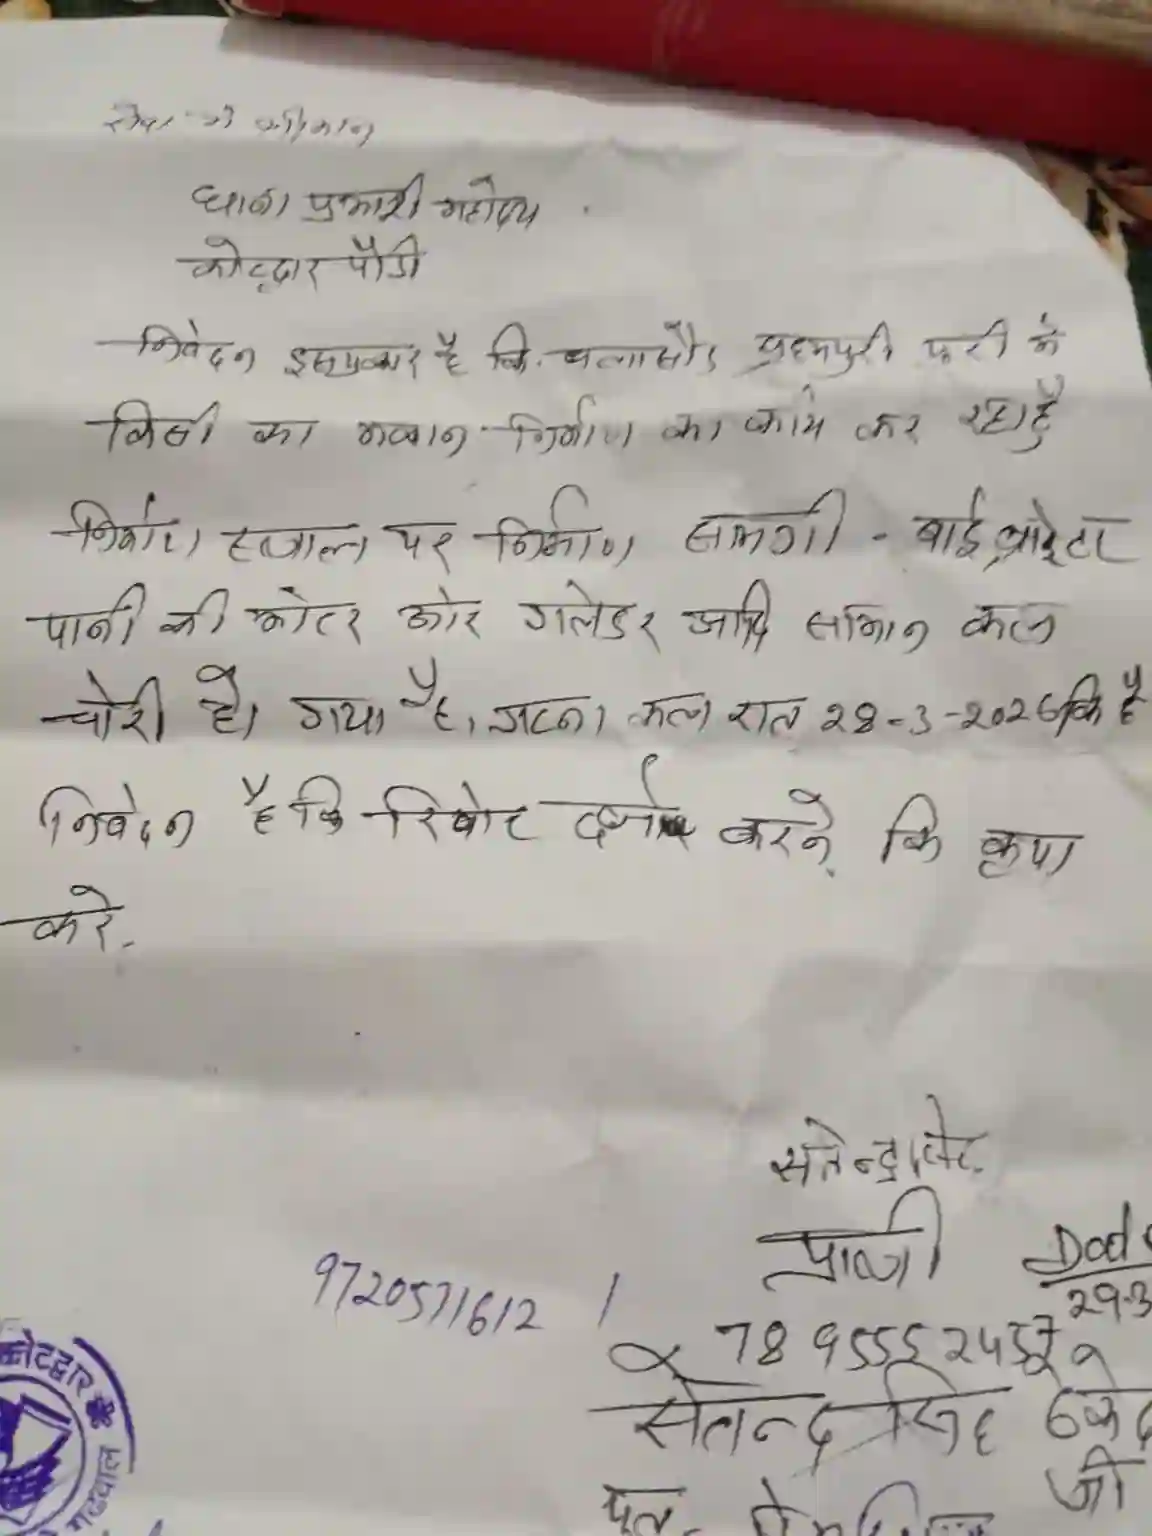 सेवा में श्रीमान
थाना प्रभारी महोदय
कोटद्वार पौडी
निवेदन इसप्रकार है कि
किसी का मकान निर्माण का काम कर रहा हुँ
निर्माण स्थल पर निर्माण सामग्री - वाईब्रेटर
पानी की मोटर और गलेडर आदि सामान कल
चोरी हो गया है। घटना कल रात 28-3-2026 कि है
निवेदन है कि रिपोट दर्ज करने कि कृपा
करे.
सतेन्द्र
प्रार्थी
29-3
9720571612
सतेन्द्र सिंह ठेकेद
जी
पुत्र
कोटद्वार
गढवाल